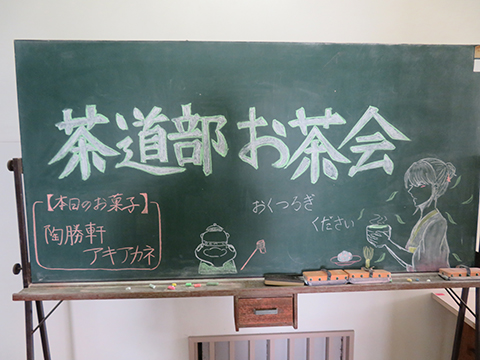 茶道部 お茶会
【本日のお菓子】
陶勝軒
アキアカネ
おくつろぎ
ください